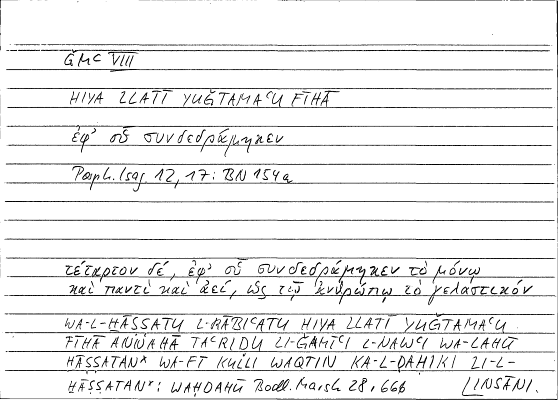 ǦMʿ VIII
HIYA LLATĪ YUǦTAMAʿU FĪHĀ
ἐφ' οὗ συνδεδράμηκεν
Porph. Isag. 12, 17: BN 154a
τέταρτον δέ, ἐφ' οὗ συνδεδράμηκεν τὸ μόνῳ
καὶ παντὶ καὶ ἀεί, ὡς τῷ ἀνθρώπῳ τὸ γελαστικόν
WA-L-ḪĀṢṢATU L-RĀBIʿATU HIYA LLATĪ YUǦTAMAʿU
FĪHĀ ANNAHĀ TAʿRIḌU LI-ǦAMĪʿI L-NAWʿI WA-LAHŪ
ḪĀṢṢATAN* WA-FĪ KULLI WAQTIN KA-L-ḌAḤIKI LI-L-
INSĀNI.
ḪĀṢṢATAN*: WAḤDAHŪ Bodl. Marsh 28, 66b